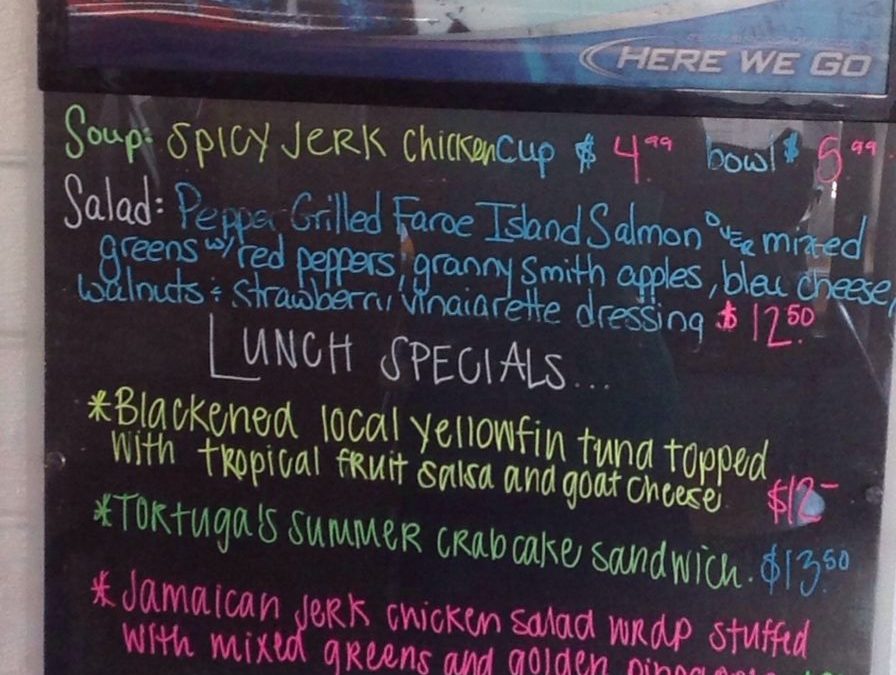 HERE WE GO
Soup: Spicy Jerk Chicken Cup $4.99 bowl $5.99
Salad: Pepper Grilled Faroe Island Salmon over mixed
greens w/ red peppers, granny smith apples, bleu cheese
walnuts & strawberry vinaiarette dressing $12.50
LUNCH SPECIALS...
*Blackened local yellowfin tuna topped
with tropical fruit salsa and goat cheese $12-
*Tortuga's summer crabcake sandwich. $13.50
*Jamaican jerk chicken salad wrap stuffed
with mixed greens and golden